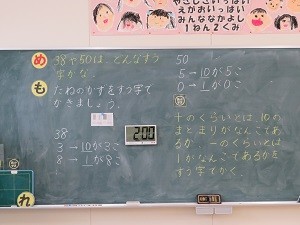 やさしさいっぱい
えがおいっぱい
みんななかよし
1ねん2くみ
め
38や50は、どんなすう
字かな。
も
たねのかずをすう字で
かきましょう。
38
3→10が3こ
8→1が8こ
2:00
50
5→10が5こ
0→1が0こ
十のくらいとは、10の
まとまりがなんこで
あるか 一のくらいとは
1がなんこであるかを
すう字でかく。
れ